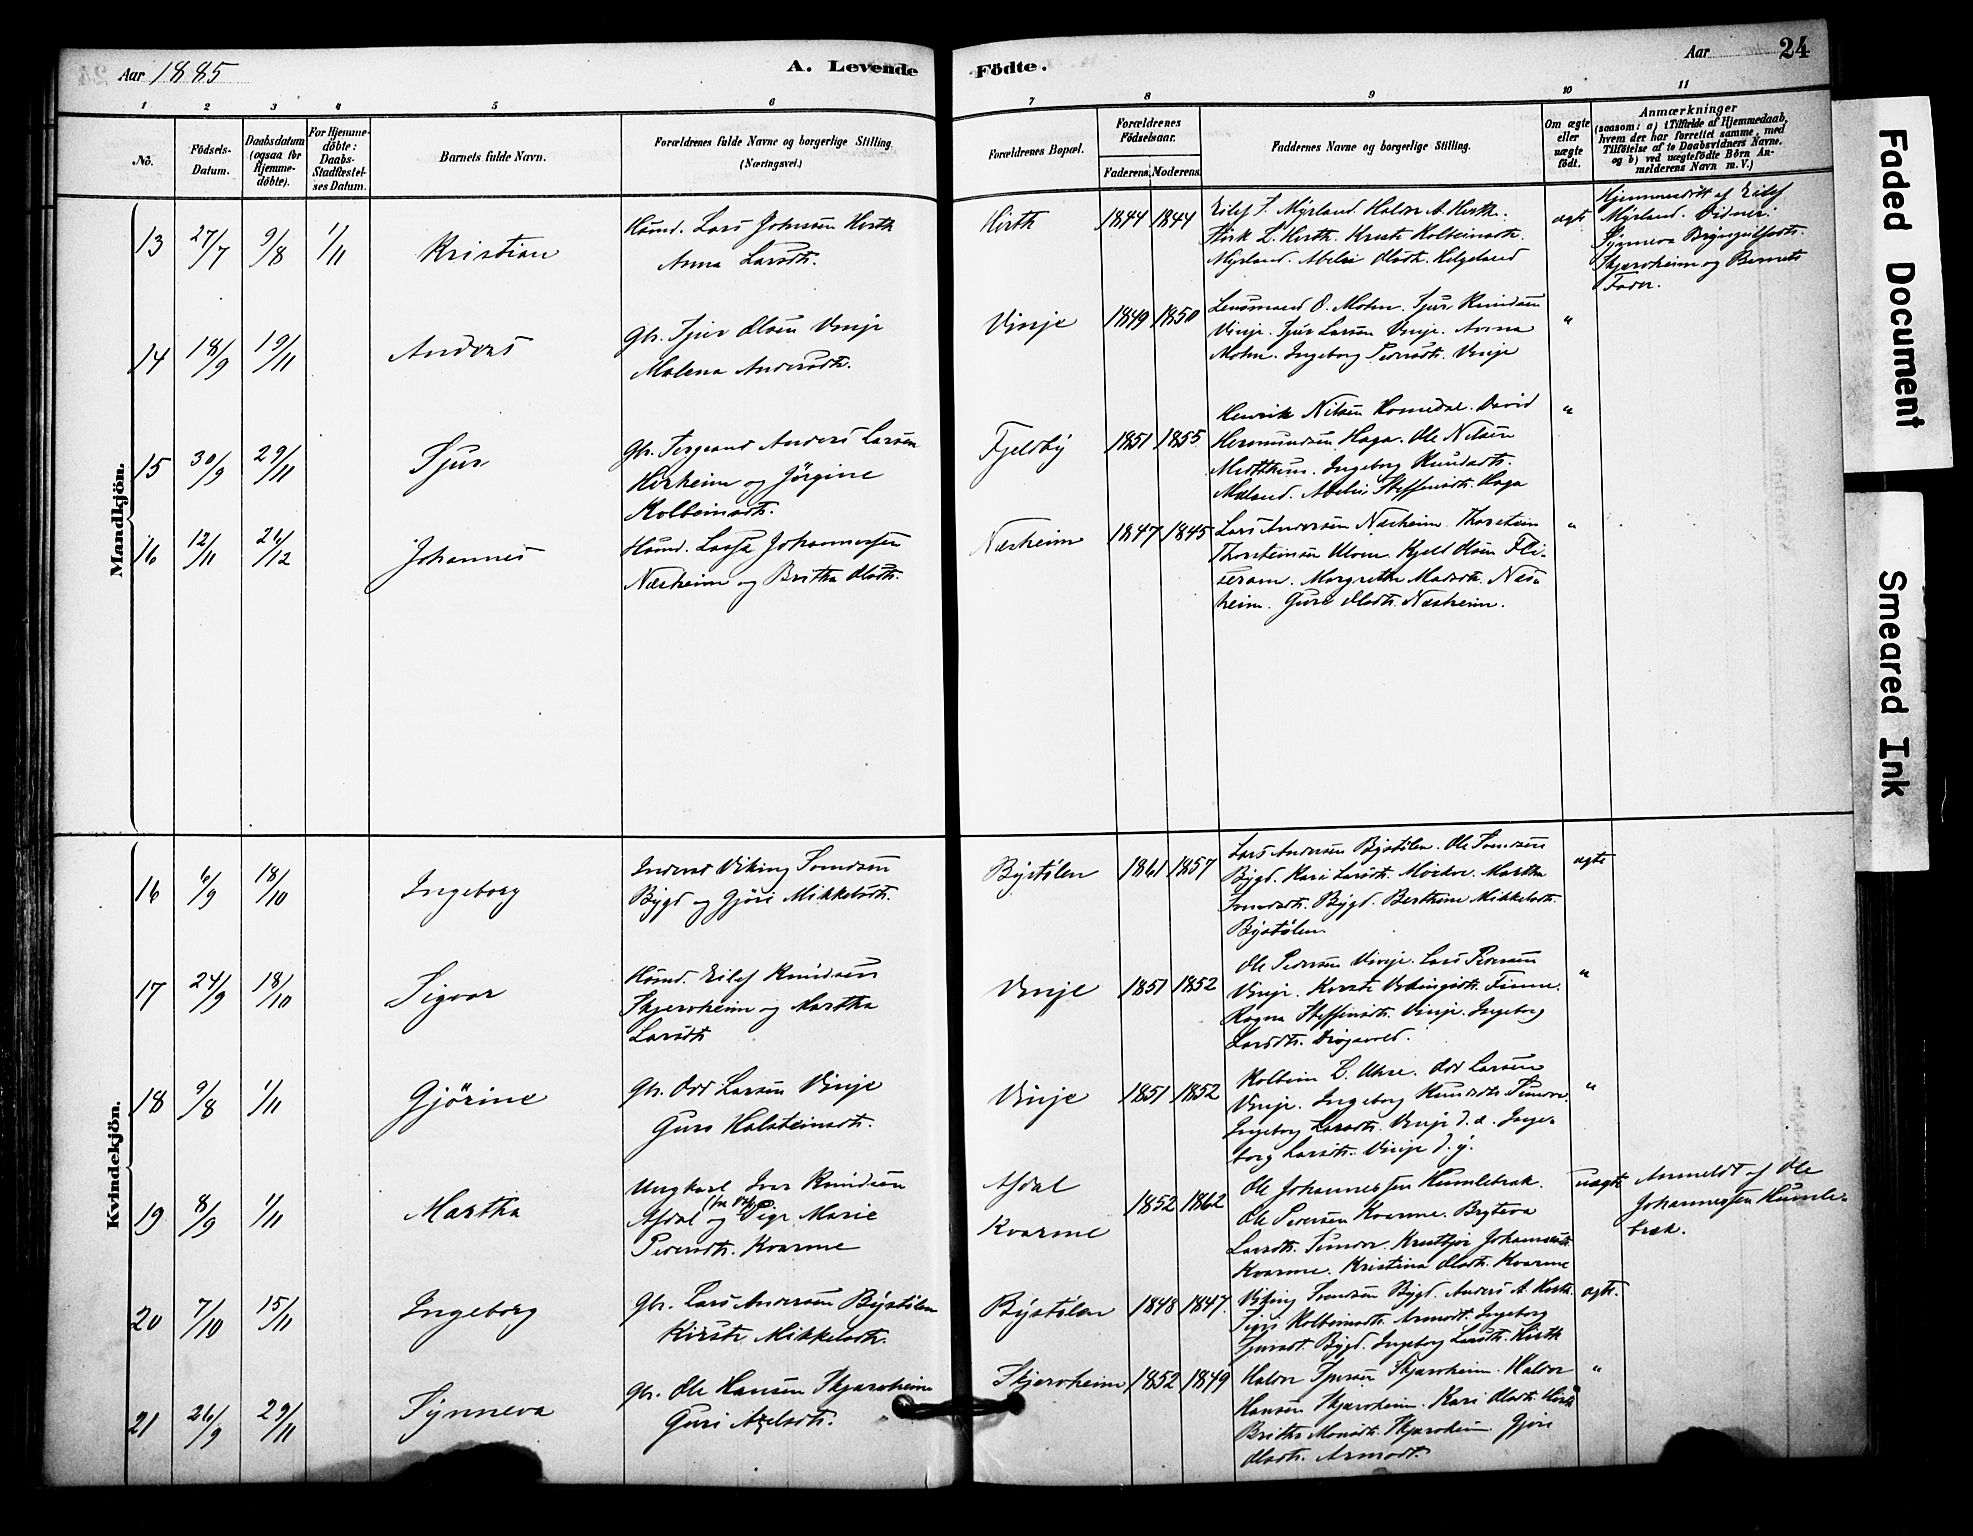 Aar 1885
A. Levende
Födte.
Aar
24
1 2 3 4 5 6 7 8 9 10 11
No.
Födsels-Datum.
Daabsdatum (ogsaa for Hjemme-döbte).
For Hjemme-döbte: Daabs-Stadfæstel-ses Datum.
Barnets fulde Navn.
Forældrenes fulde Navne og borgerlige Stilling
(Næringsvei.)
Forældrenes Bopæl.
Forældrenes Födselsaar.
Faderens. Moderens.
Faddernes Navne og borgerlige Stilling.
Om ægte eller uægte födt.
Anmærkninger
(saasom: a) i Tilfælde af Hjemmedaab, hvem der har forrettet samme, med Tilföielse af to Daabsvidners Navne, og b) ved uægtefödte Börn An-melderens Navn m. V.)
Mandkjön.
13 27/7 9/8 1/11 Kristian
Huusmd. Lars Johnsen Herth
Anna Larsdtr.
Hirth 1844 1844
Eilef S. Myrland. Haldor A. Herth.
Eirik L. Herth. Kristi Kolbeinsdtr.
Myrland. Abelin Olsdtr. Helgeland
ægte
Hjemmedöbt af Eilef
Myrland. Vidner:
Synneva Brynjulfsdtr.
Skjerveheim og Barnets
Fader.
14 18/9 19/11 Anders
Gbr. Sjur Olsen Vinje
Malena Andersdtr.
Vinje 1849 1850
Lensmand O. Mohn. Sjur Knudsen
Vinje. Sjur Larsen Vinje. Anna
Mohn. Ingeborg Pedersdtr. Vinje
"
15 30/9 29/11 Sjur
Gbr. Sergeant Anders Larsen
Hirheim og Jörgine
Kolbeinsdtr.
Fjeldby 1851 1855
Henrik Nilsen Homedal. David
Hermundsen Haga. Ole Nilsen
Ingeborg Knudsdtr.
Mæland. Abelin Steffensdtr. Haga
"
16 12/11 26/12 Johannes
Huusmd. Lasse Johannessen
Næsheim og Britha Olsdtr.
Næsheim 1847 1845
Lars Andersen Næsheim. Thorstein
Thorsteinsen Ulven. Kjeld Olsen Fli-
seram. Margrethe Madsdtr. Næs-
heim. Guri Olsdtr. Næsheim.
"
Kvindekjön.
16 6/9 18/10 Ingeborg
Inderst Viking Svendsen
Bygd og Gjöri Mikkelsdtr.
Bystölen 1861 1857
Lars Andersen Bystölen. Ole Svendsen
Bygd. Kari Larsdtr. Mörkve. Martha
Svendsdtr. Bygd. Berthine Mikkelsdtr.
Bystölen.
ægte
17 24/9 18/10 Sigvor
Huusmd. Eilef Knudsen
Skjerveheim og Martha
Larsdtr.
Vinje 1851 1852
Ole Pedersen Vinje. Lars Pedersen
Vinje. Kirsti Vikingsdtr. Finne.
Ragna Steffensdtr. Vinje. Ingeborg
Larsdtr. Drögsvold.
"
18 9/8 1/11 Gjörine
Gbr. Odd Larsen Vinje
Guro Halsteinsdtr.
Vinje 1851 1852
Kolbein L. Uhre. Odd Larsen
Vinje. Ingeborg Knudsdtr. Tundre.
Ingeborg Larsdtr. Vinje d. æ. Inge-
borg Larsdtr. Vinje d. y.
"
19 8/9 1/11 Martha
Ungkarl Ivar Knudsen
Afdal og Pige Marie
Pedersdtr. Kvarme
Afdal
Kvarme
1852 1862
Ole Johannessen Humlebrek.
Ole Pedersen Kvarme. Bryteva
Larsdtr. Tundre. Kristbjor Johannesdtr.
Kvarme. Kristina Olsdtr. Kvarme
uægte
Anmeldt af Ole
Johannessen Humle-
brek.
20 7/10 15/11 Ingeborg
Gbr. Lars Andersen Bystölen
Kirsti Mikkelsdtr.
Bystölen 1848 1847
Viking Svendsen Bygd. Anders A. Herth.
Kolbeinsdtr. Armodt. Ingeborg
Sjursdt. Bygd. Ingeborg Larsdtr. Hirth
ægte.
21 26/9 29/11 Synneva
Gbr. Ole Hansen Skjærveheim
Guri Axelsdtr.
Skjerveheim 1852 1849
Haldor Sjursen Skjærveheim. Haldor
Hansen Skjærveheim. Kari Olsdtr. Hirth
Britha Monsdtr. Skjærveheim. Gjöri
Olsdtr. Armodt.
"
Faded Document
Smeared Ink